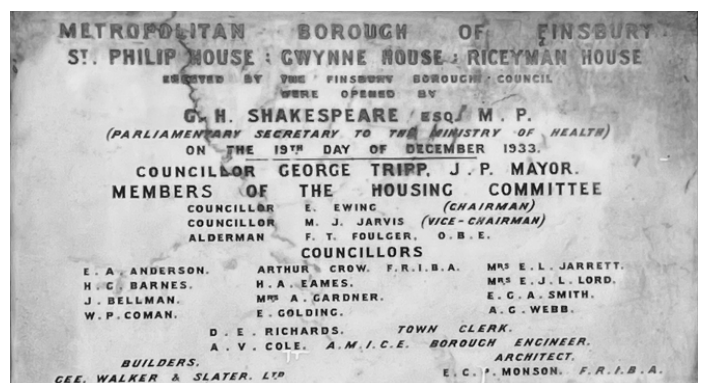 METROPOLITAN BOROUGH OF FINSBURY
ST. PHILIP HOUSE : GWYNNE HOUSE : RICEYMAN HOUSE
ERECTED BY THE FINSBURY BOROUGH COUNCIL
WERE OPENED BY
G. H. SHAKESPEARE ESQ. M.P.
(PARLIAMENTARY SECRETARY TO THE MINISTRY OF HEALTH)
ON THE 19TH DAY OF DECEMBER 1933.
COUNCILLOR GEORGE TRIPP, J.P. MAYOR.
MEMBERS OF THE HOUSING COMMITTEE
COUNCILLOR E. EWING (CHAIRMAN)
COUNCILLOR M. J. JARVIS (VICE-CHAIRMAN)
ALDERMAN F. T. FOULGER, O.B.E.
COUNCILLORS
E. A. ANDERSON. ARTHUR CROW. F.R.I.B.A. MRS E. L. JARRETT.
H. C. BARNES. H. A. EAMES. MRS E. J. L. LORD.
J. BELLMAN. MRS A. GARDNER. E. C. A. SMITH.
W. P. COMAN. E. GOLDING. A. G. WEBB.
D. E. RICHARDS. TOWN CLERK.
A. V. COLE. A.M.I.C.E. BOROUGH ENGINEER.
BUILDERS. ARCHITECT.
GEE, WALKER & SLATER. LTD E. C. P. MONSON. F.R.I.B.A.